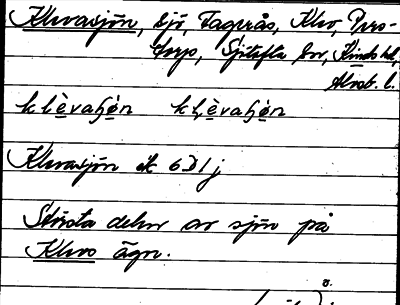 Klevasjön, sjö, Fagerås, Klev, Pers-
torp, Sjötofta sn, Kinds hd,
Älvsb. l.
klèvaɧøn klèvaɧøn
Klevasjön ek 6D1j
Största delen av sjön på
Klevs ägor.